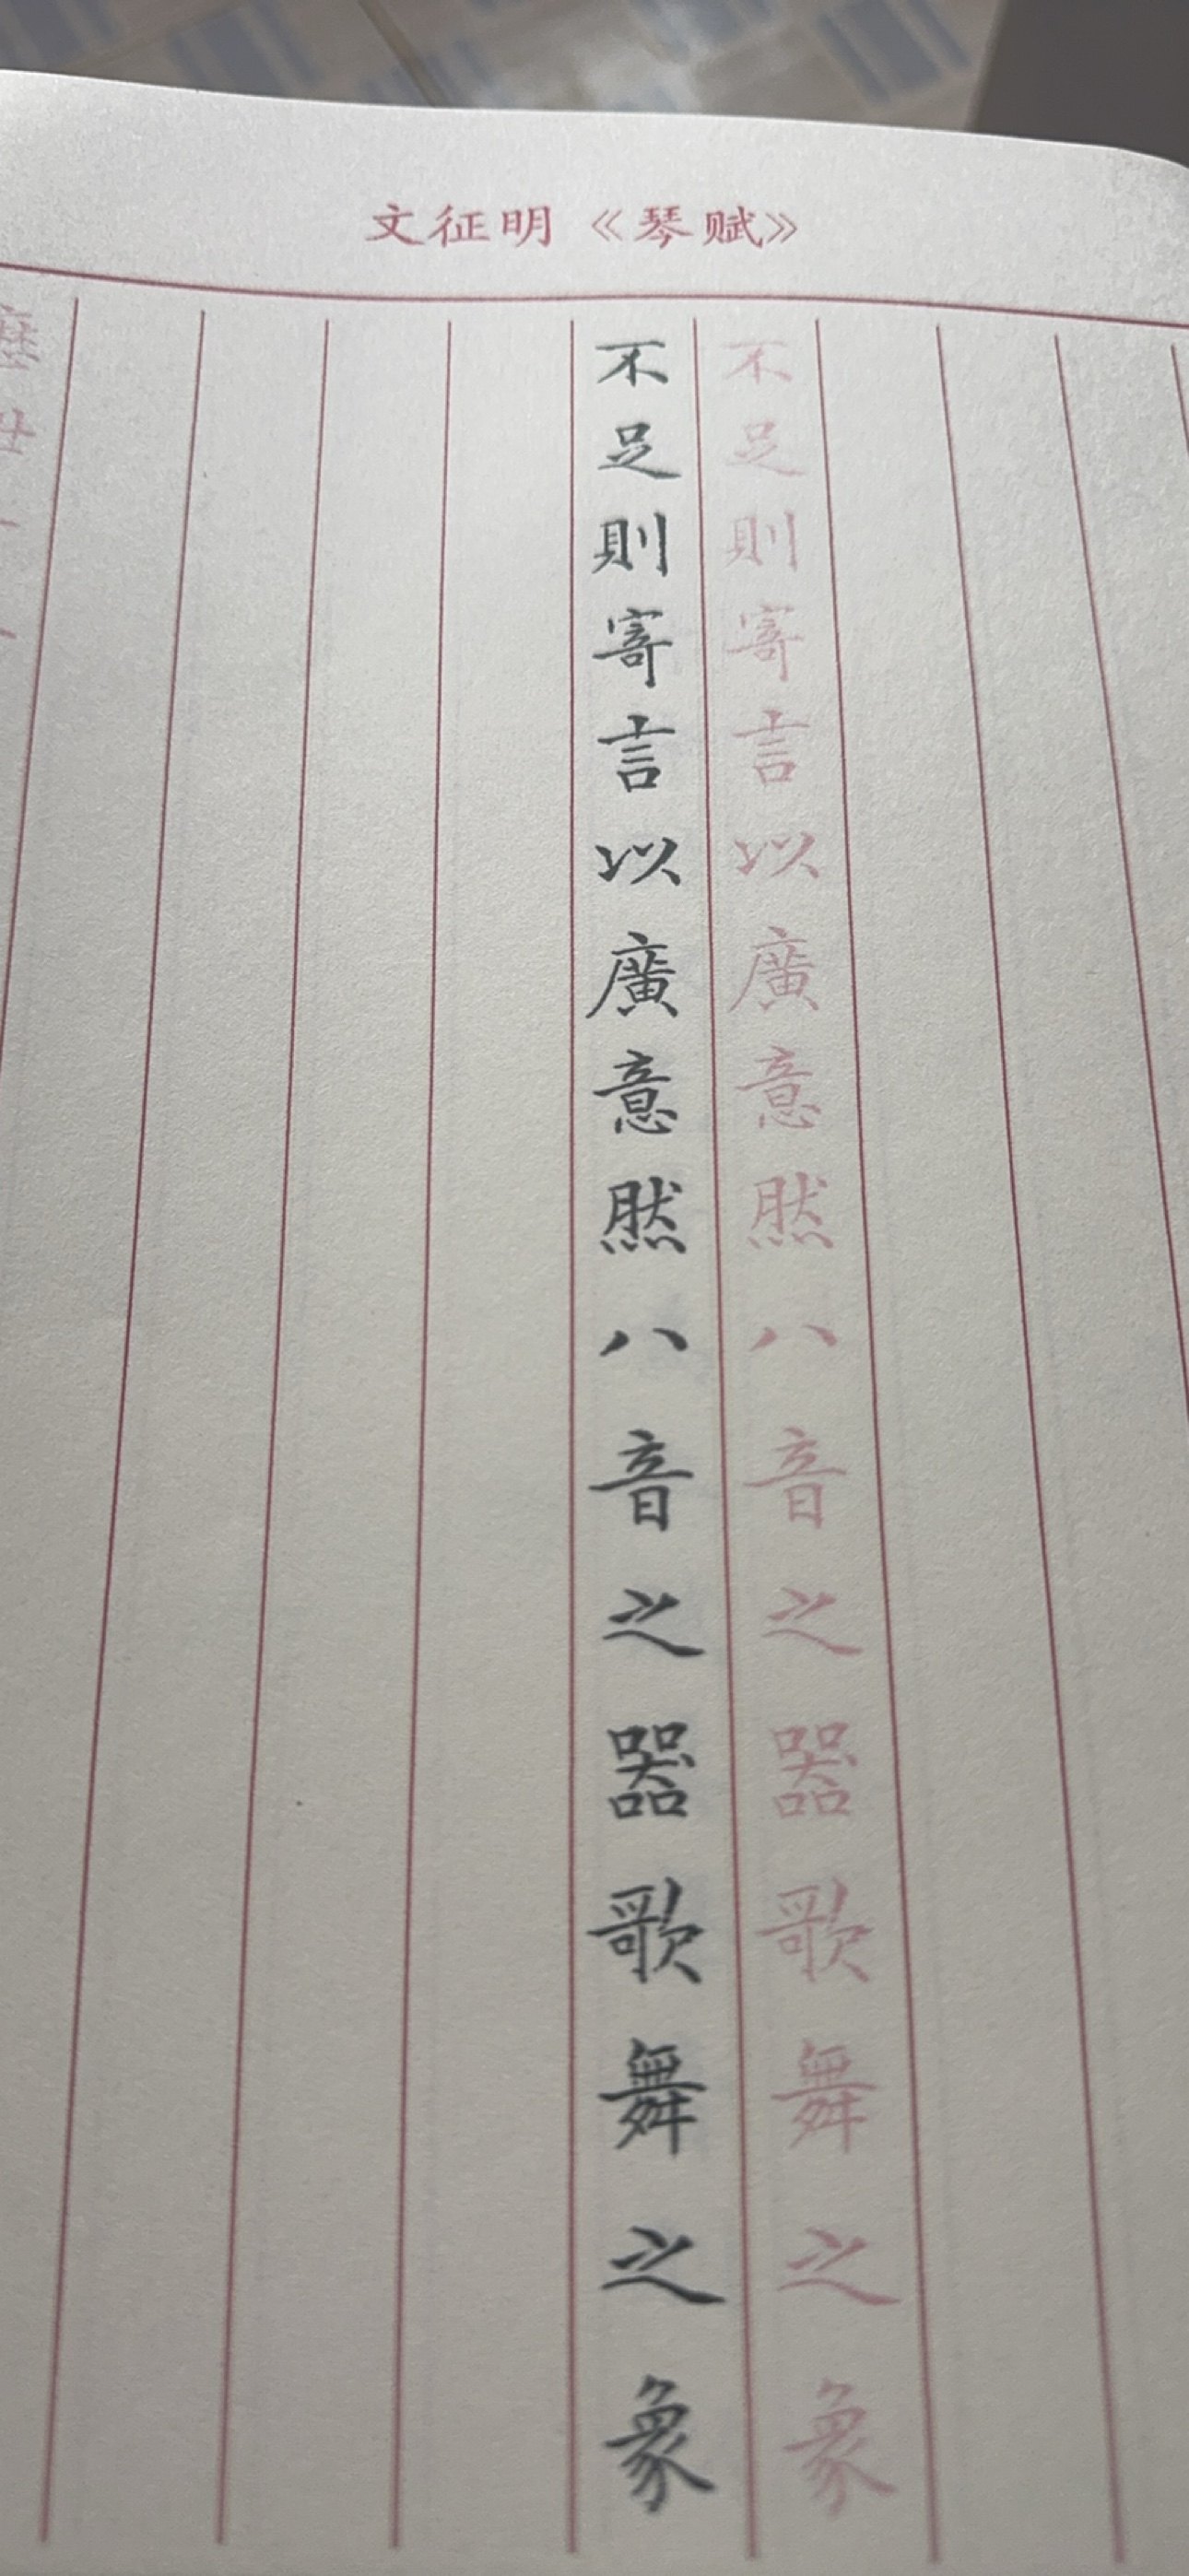 文征明《琴赋》
不足則寄言以廣意然八音之器歌舞之象
不足則寄言以廣意然八音之器歌舞之象
歷世